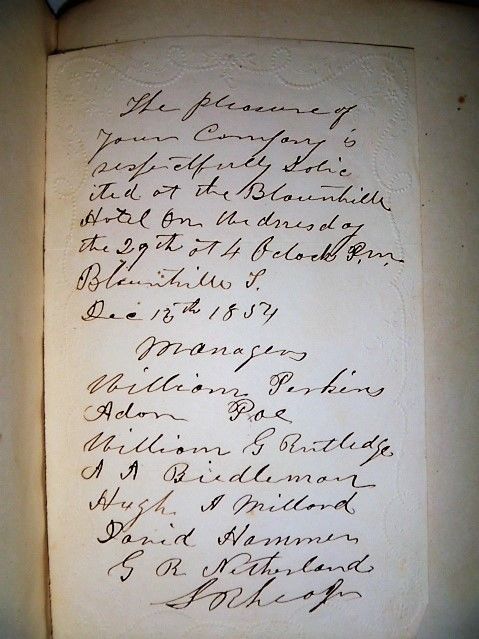 The pleasure of
your Company is
respectfully Solic
ited at the Blountville
Hotel On Wednesday
the 29th at 4 Oclock P.m.
Blountville T.
Dec 15th 1854
Managers
William Perkins
Adam Poe
William G Rutledge
A A Biedleman
Hugh A Millard
David Hammer
G R Netherland